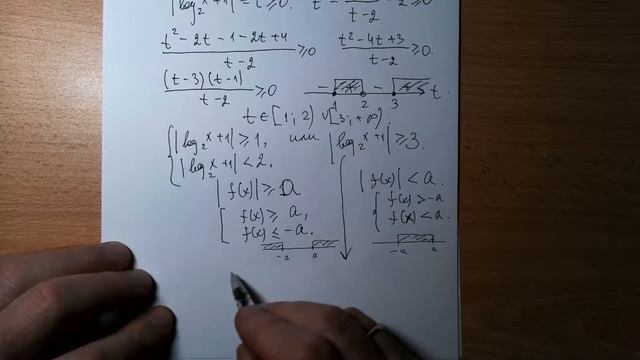 |log₂x+1| = t ≥ 0. t - —/t-2 - 2 ≥ 0
t² - 2t - 1 - 2t + 4 / t - 2 ≥ 0 t² - 4t + 3 / t - 2 ≥ 0.
(t-3)(t-1) / t - 2 ≥ 0 - + - + t.
1 2 3
t ∈ [1; 2) ∪ [3; +∞).
{ |log₂x+1| ≥ 1, или |log₂x+1| ≥ 3.
|log₂x+1| < 2.
|f(x)| ≥ a |f(x)| < a.
[ f(x) ≥ a, { f(x) > -a
f(x) ≤ -a. f(x) < a.
-a a -a a